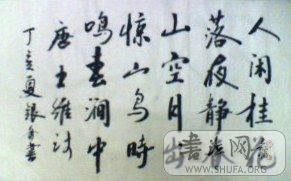 人闲桂花
落夜静春
山空月出
惊山鸟時
鸣春涧中
唐王维诗
丁亥夏银舟書
书法
WWW.SHUFA.ORG